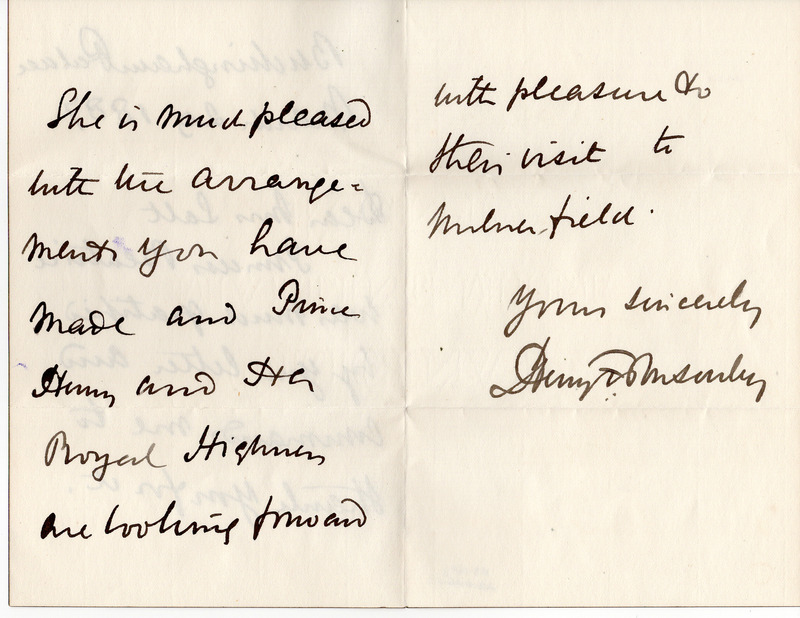 She is much pleased
with the arrange=
ments you have
made and Prince
Henry and Her
Royal Highness
are looking forward
with pleasure to
their visit to
Milner field.
Yours sincerely
Henry F Ponsonby